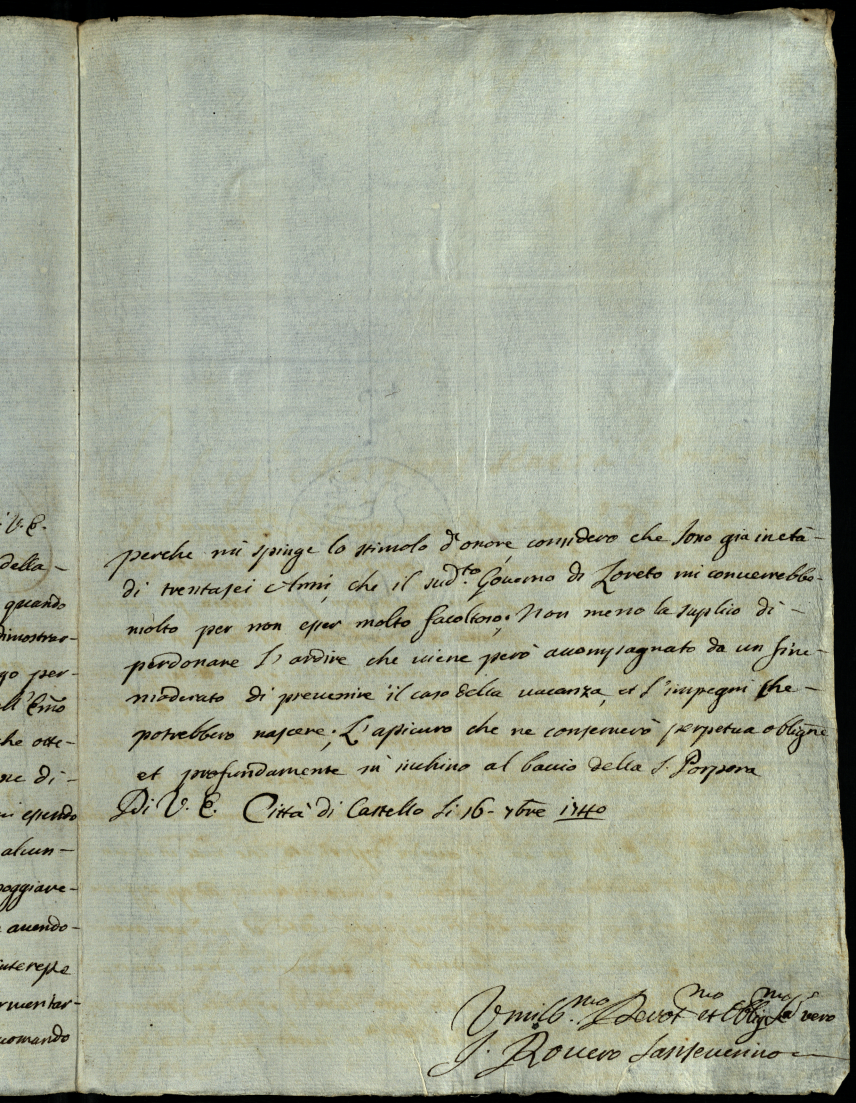 i V. E.
della-
quando
dimostrar-
go per-
Emo
he otte-
ne di-
essendo
alcun-
poggiare-
avendo-
interesse
rmentar-
comando
perche mi spinge lo stimolo d'onore, considero che sono gia in età-
di trentasei Anni, che il sud.to Governo di Loreto mi converrebbe-
molto per non esser molto facoltoso; Non meno la suplico di-
perdonare L'ardire che viene però accompagnato da un fine-
moderato di prevenire il caso della vacanza, et l'impegni che-
potrebbero nascere; L'assicuro che ne conserverò perpetua obligne
et profundamente m'inchino al baccio della S. Porpora
Di V. E. Città di Castello li 16- 7bre 1740
Vmilis.mo Devot.mo et Oblig.mo vero
J. Rovero Sanseverino